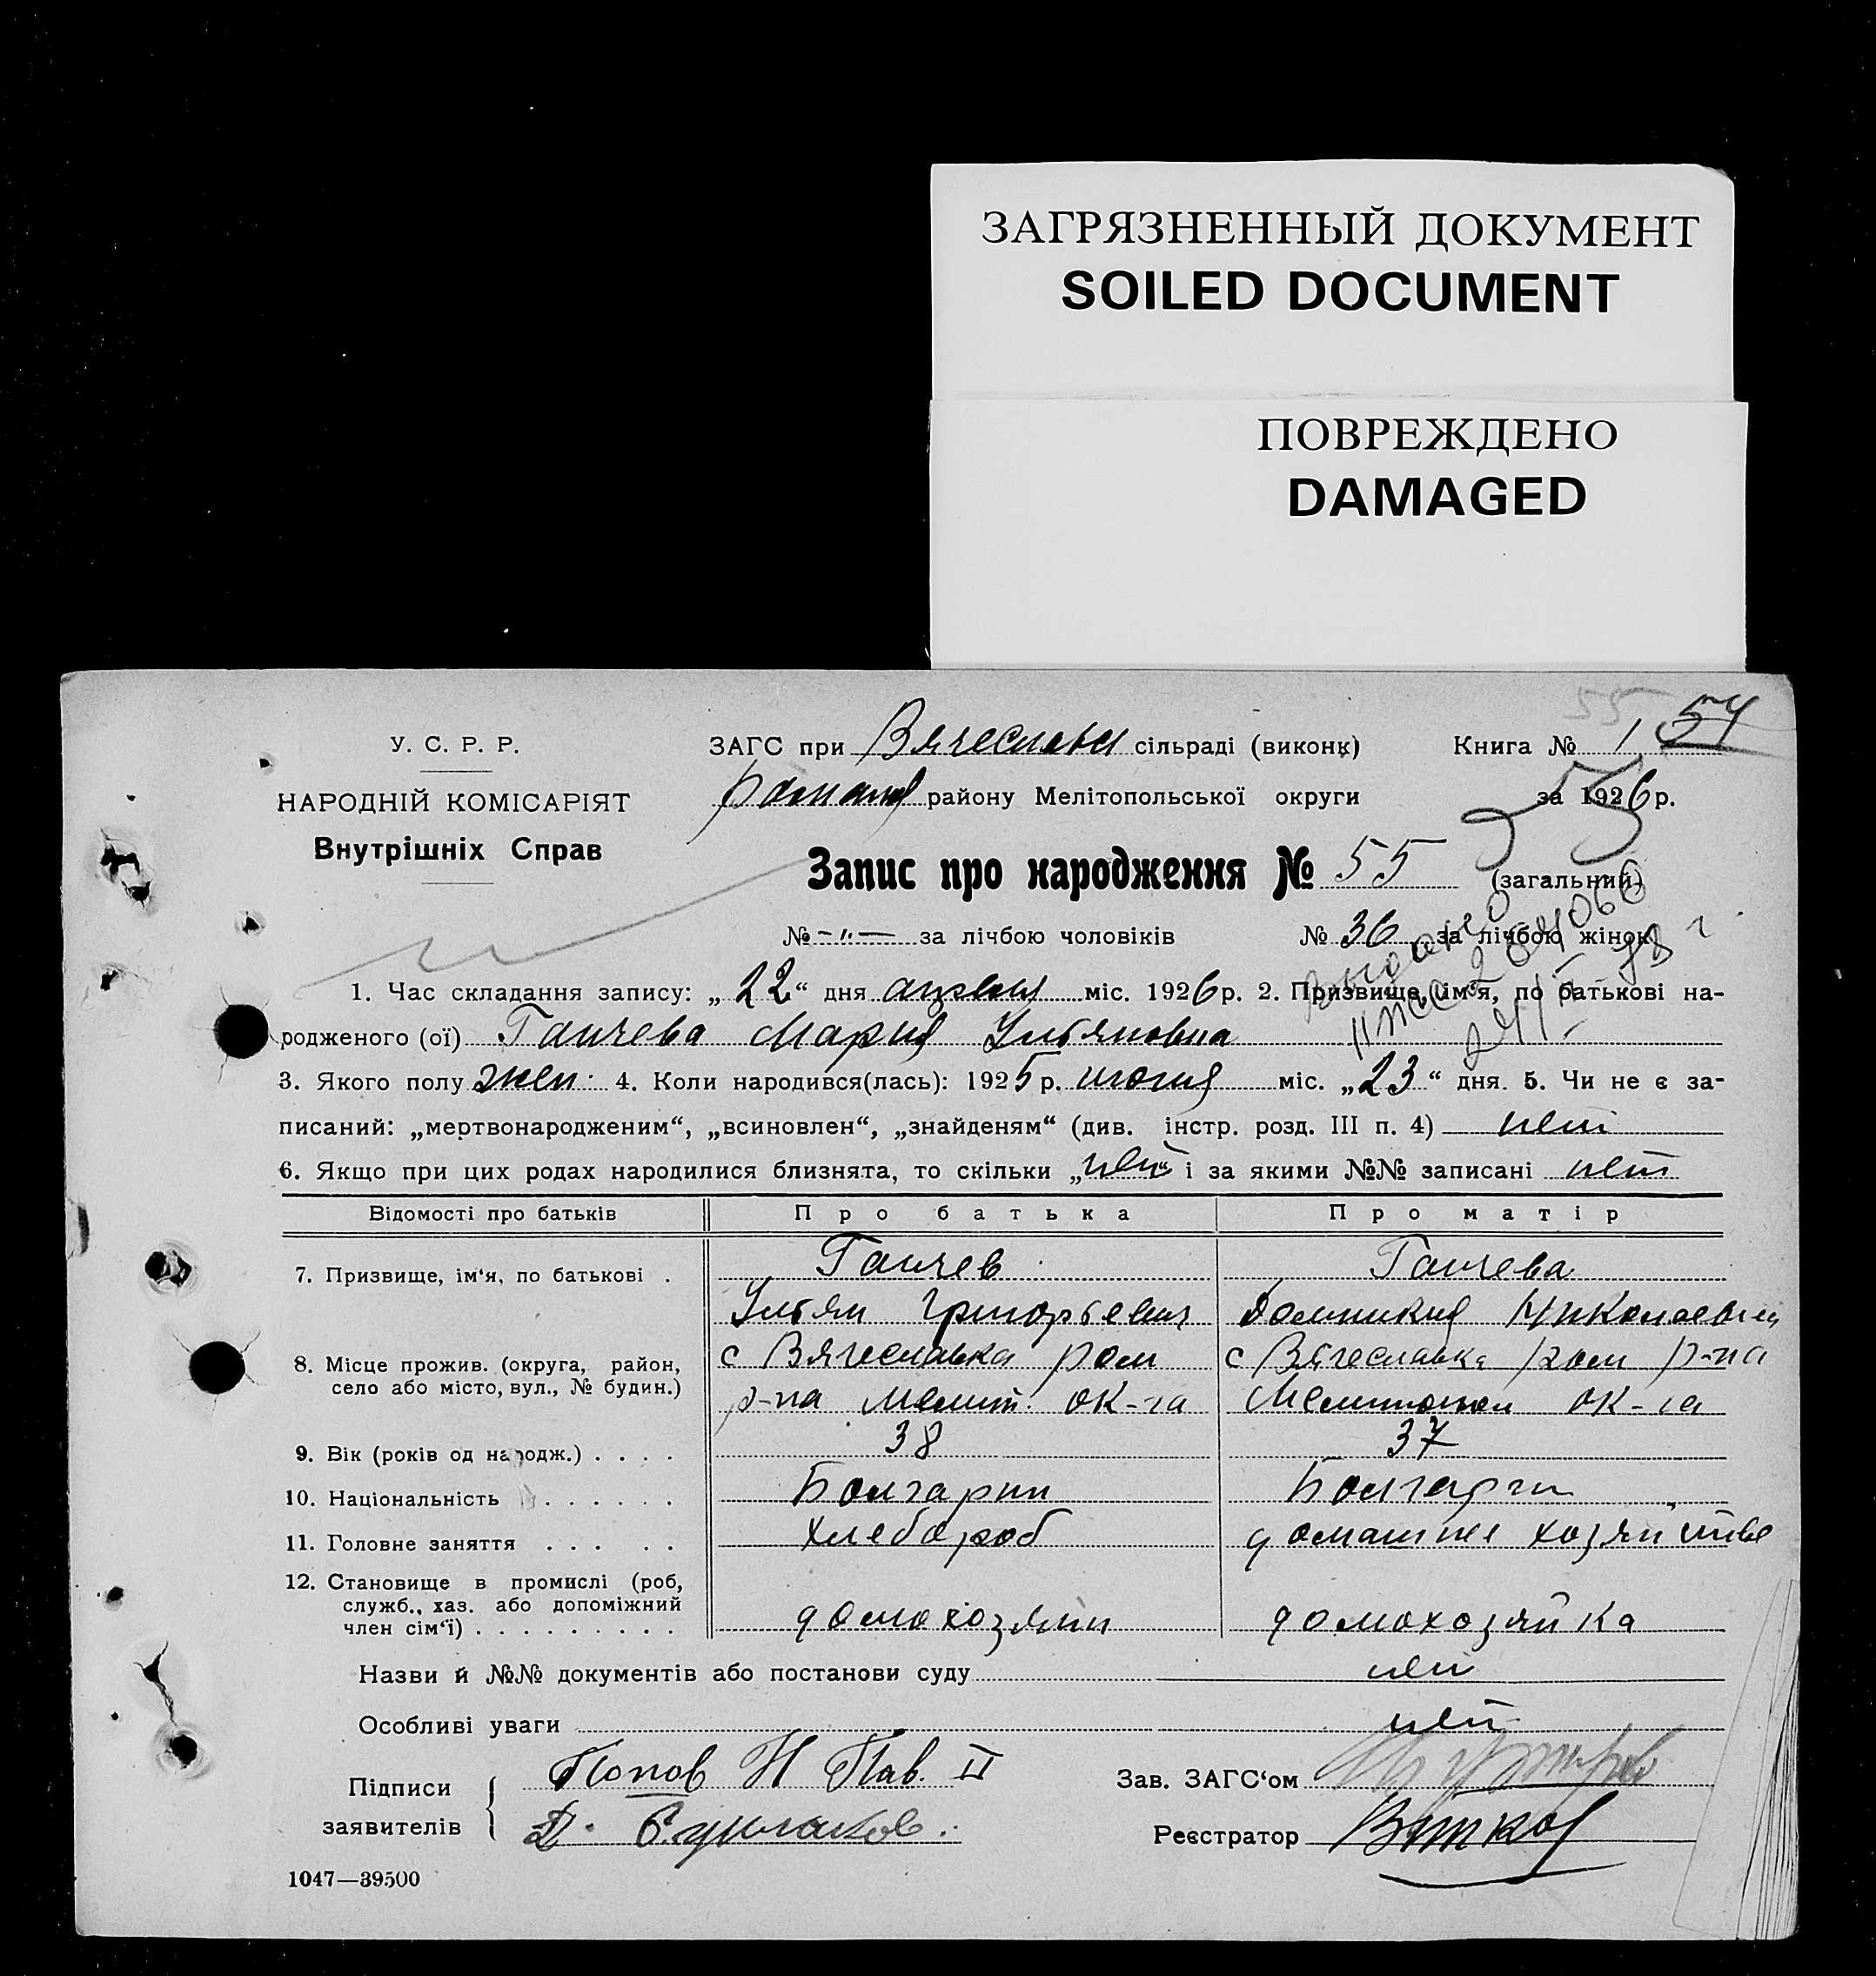 ЗАГРЯЗНЕННЫЙ ДОКУМЕНТ
SOILED DOCUMENT
ПОВРЕЖДЕНО
DAMAGED
55 54
У. С. Р. Р.
ЗАГС при сільраді (виконк)
Книга № 1
НАРОДНІЙ КОМІСАРІЯТ
району Мелітопольської округи
за 1926 р.
Внутрішніх Справ
55
Запис про народження № 55 (загальний)
№ -"- за лічбою чоловіків № 36 за лічбою жінок
Выдано
1. Час складання запису: „22“ дня апреля міс. 1926 р. 2. Призвище, ім'я, по батькові на-
родженого (ої) Ганчева Мария Ульяновна
3. Якого полу жен. 4. Коли народився(лась): 1925 р. міс. „23“ дня. 5. Чи не є за-
писаний: „мертвонародженим“, „всиновлен“, „знайденям“ (див. інстр. розд. III п. 4) нет
6. Якщо при цих родах народилися близнята, то скільки „нет“ і за якими №№ записані нет
Відомості про батьків Про батька Про матір
7. Призвище, ім‘я, по батькові . Ганчев Ганчева
Ульян Григорьевич Домникия Николаевна
8. Місце прожив. (округа, район, с Вячеславка ром с Вячеславка ром р-на
село або місто, вул., № будин.) р-на Мелит. ок-га Мелитопол ок-га
9. Вік (років од народж.) . . . . 38 37
10. Національність . . . . . . Болгарин Болгарин
11. Головне заняття . . . . . хлебороб домашнее хозяйстве
12. Становище в промислі (роб,
служб., хаз. або допоміжний
член сім‘ї) . . . . . . . . . домохозяин домохозяйка
Назви й №№ документів або постанови суду нет
Особливі уваги нет
Підписи Попов Н Пав. II Зав. ЗАГС‘ом
заявителів Д. Реєстратор
1047—39500